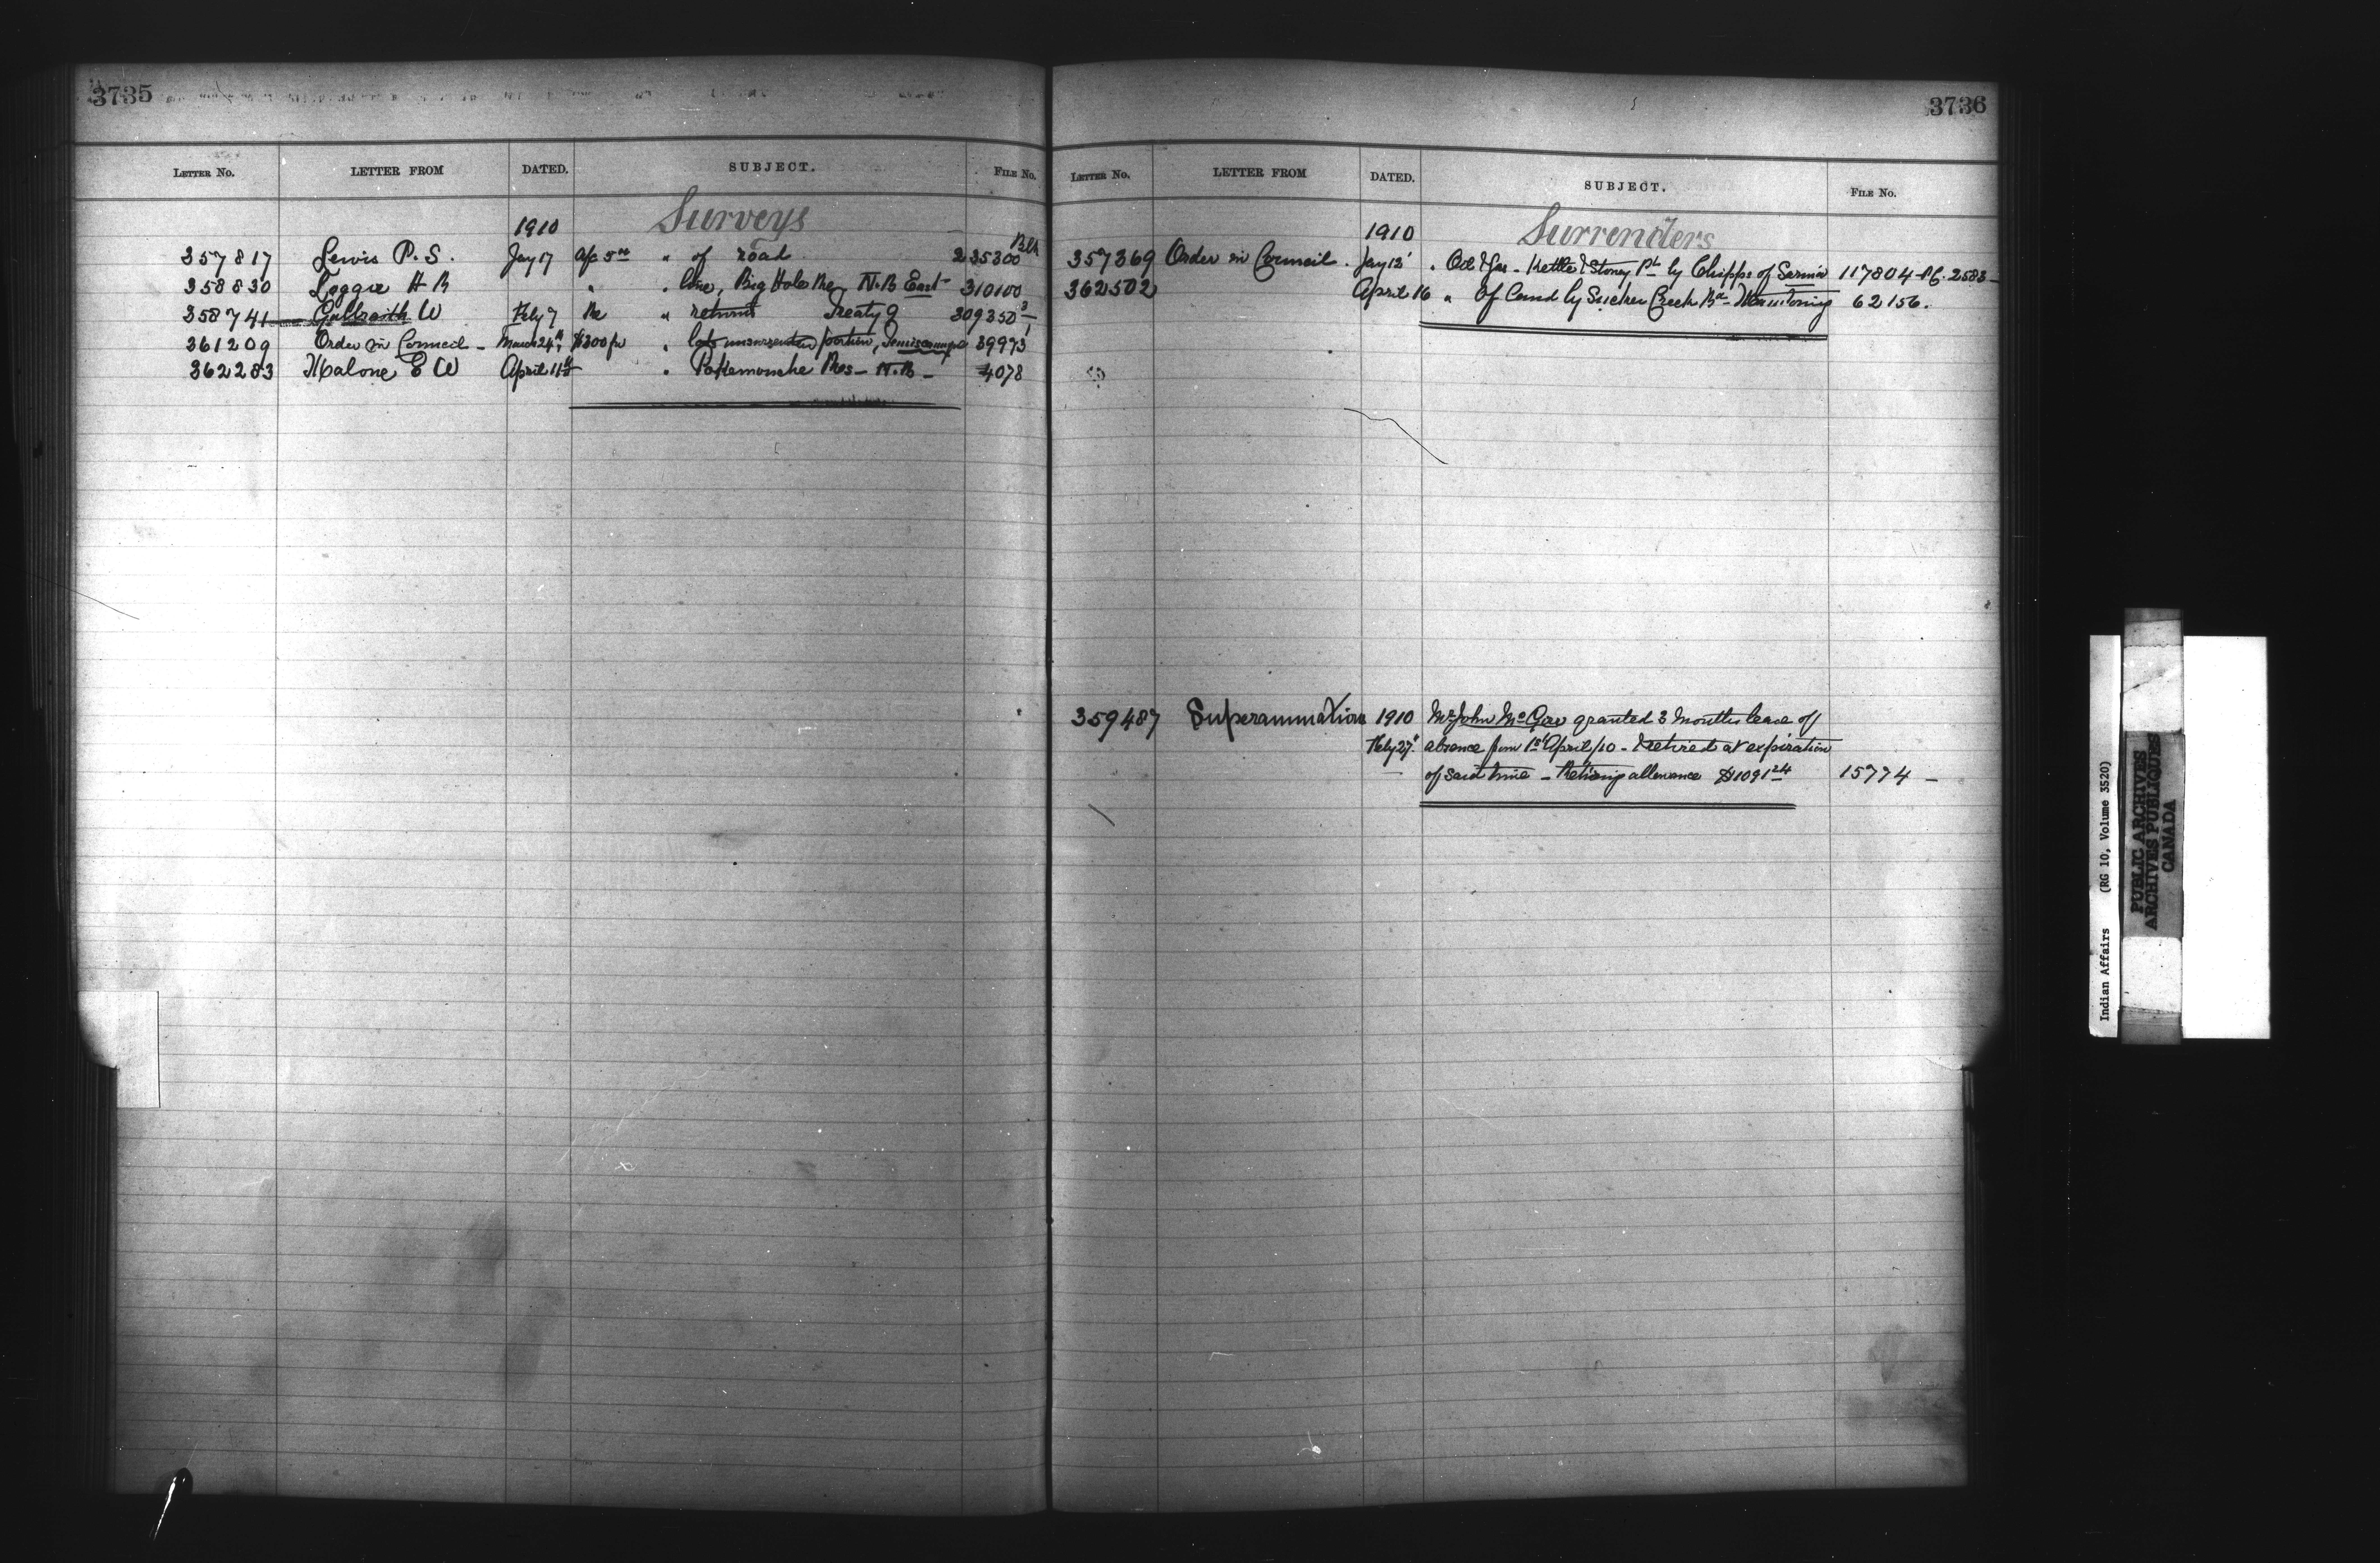 3735
LETTER No. LETTER FROM DATED. SUBJECT. FILE No.
1910 Surveys
357817 Lewis P. S. Jay 17 of road 235300 Blk
358830 Loggie H R " " line, Big Hole Re, N.B East 310100
358741 Galbraith W Feby 7 Re " returns Treaty 9 309350
361209 Order in Council - March 24th $300 for " lots unsurrendered portion, 39973
362283 Malone E W April 11th " Pokemouche Res - N.B - 4078
3736
LETTER No. LETTER FROM DATED. SUBJECT. FILE No.
1910 Surrenders
357369 Order in Council . Jay 12 " Oil & Gas - Kettle & Stoney Pt by Chipps of Sarnia 117804 - 2583 -
362502 April 16 " Of Land by Sucker Creek Bd 62156.
359487 Superannuation 1910 Mr John granted 3 months leave of
Feby 27" absence from 1st April/10 - & retired at expiration
of said time - Retiring allowance $1091 24 15774 -
Indian Affairs (RG 10, Volume 3520)
PUBLIC ARCHIVES
ARCHIVES PUBLIQUES
CANADA